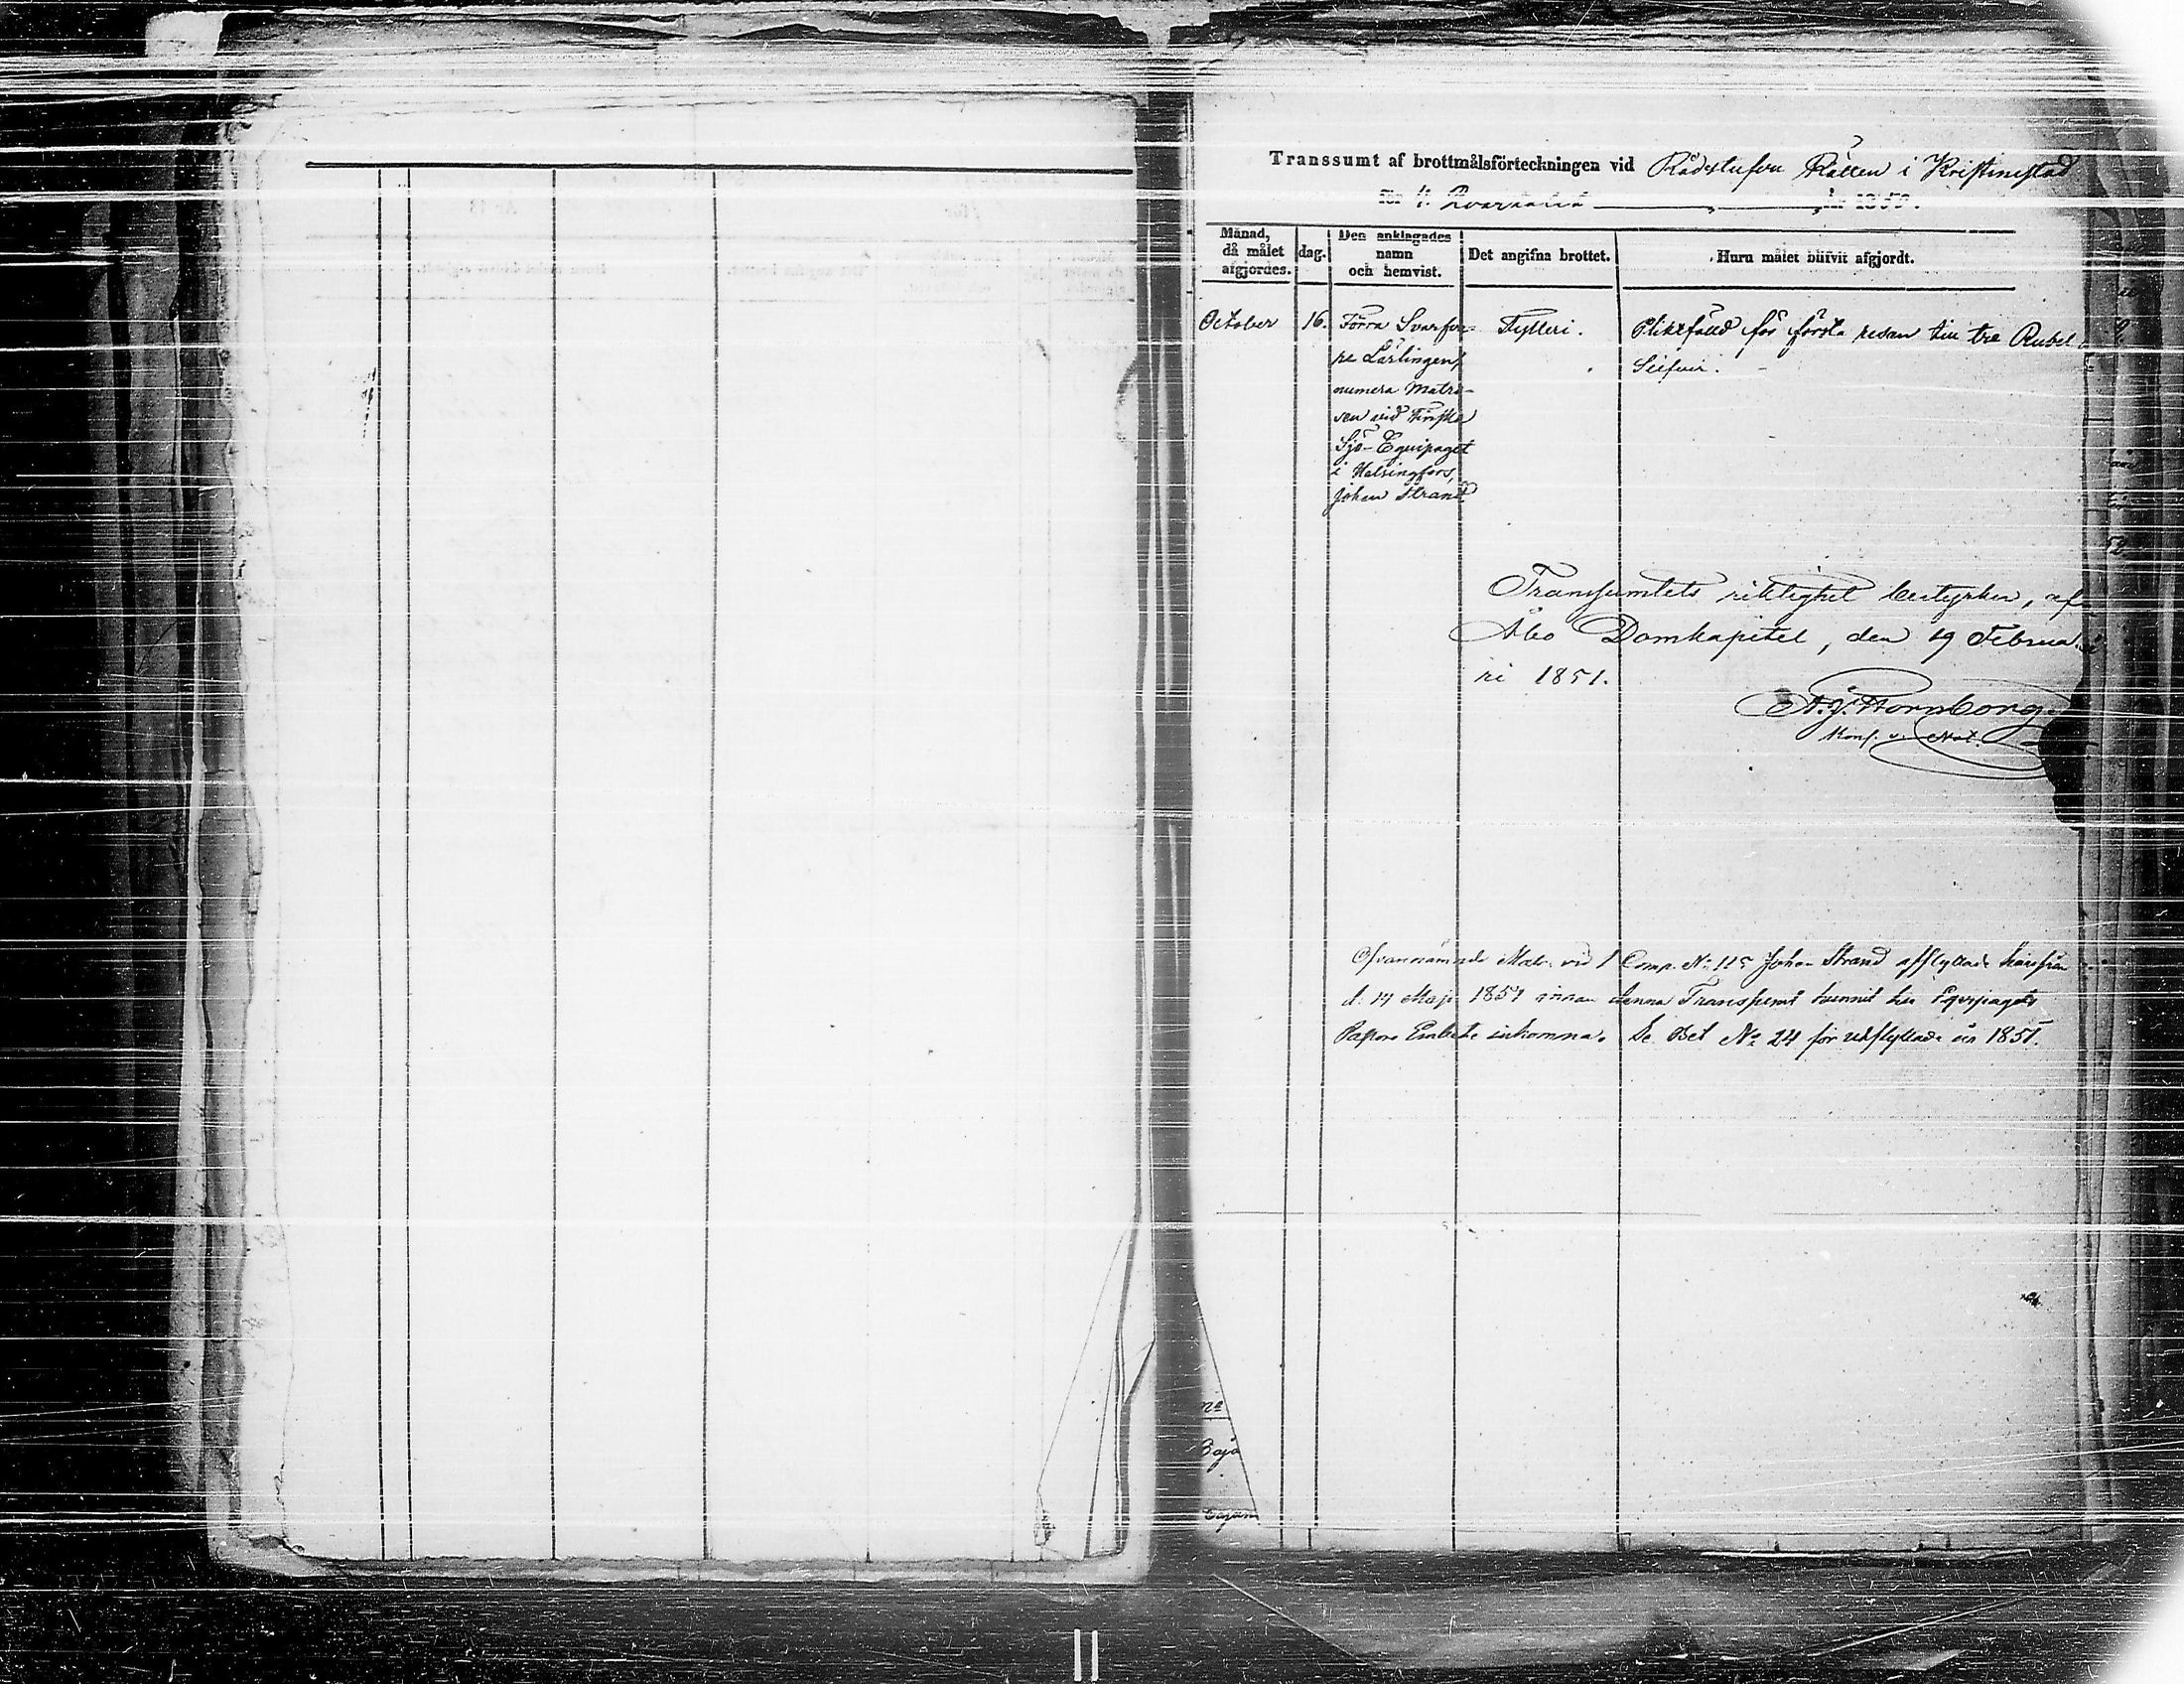 Transsumt af brottmålsförteckningen vid Rådstufvu Rätten i Kristinestad
för 4. Qvartalet år 1850.
Månad, då målet afgjordes.
dag.
Den anklagades namn och hemvist.
Det angifna brottet.
Huru målet blifvit afgjordt.
October 16. Förra Svarfva- Fylleri. Pliktfälld för första resan till tre Rubel
re Lärlingen, Silfver.
numera Matro-
sen vid Finska
Sjö-Equipaget
i Helsingfors,
Johan Strand
Transsumtets riktighet bestyrker, af
Åbo Domkapitel, den 19 Februa-
ri 1851.
A. J. Hornborg
Kons. v. Not.
Ofvannämnde Matr. vid 1 Comp. No 115 Johan Strand afflyttade härifrån
d. 14 Maji 1851 innan denna Transsumt hunnit till Equipagets
Pastors Embete inkomma. Se Bet No 24 för utflyttade år 1851.